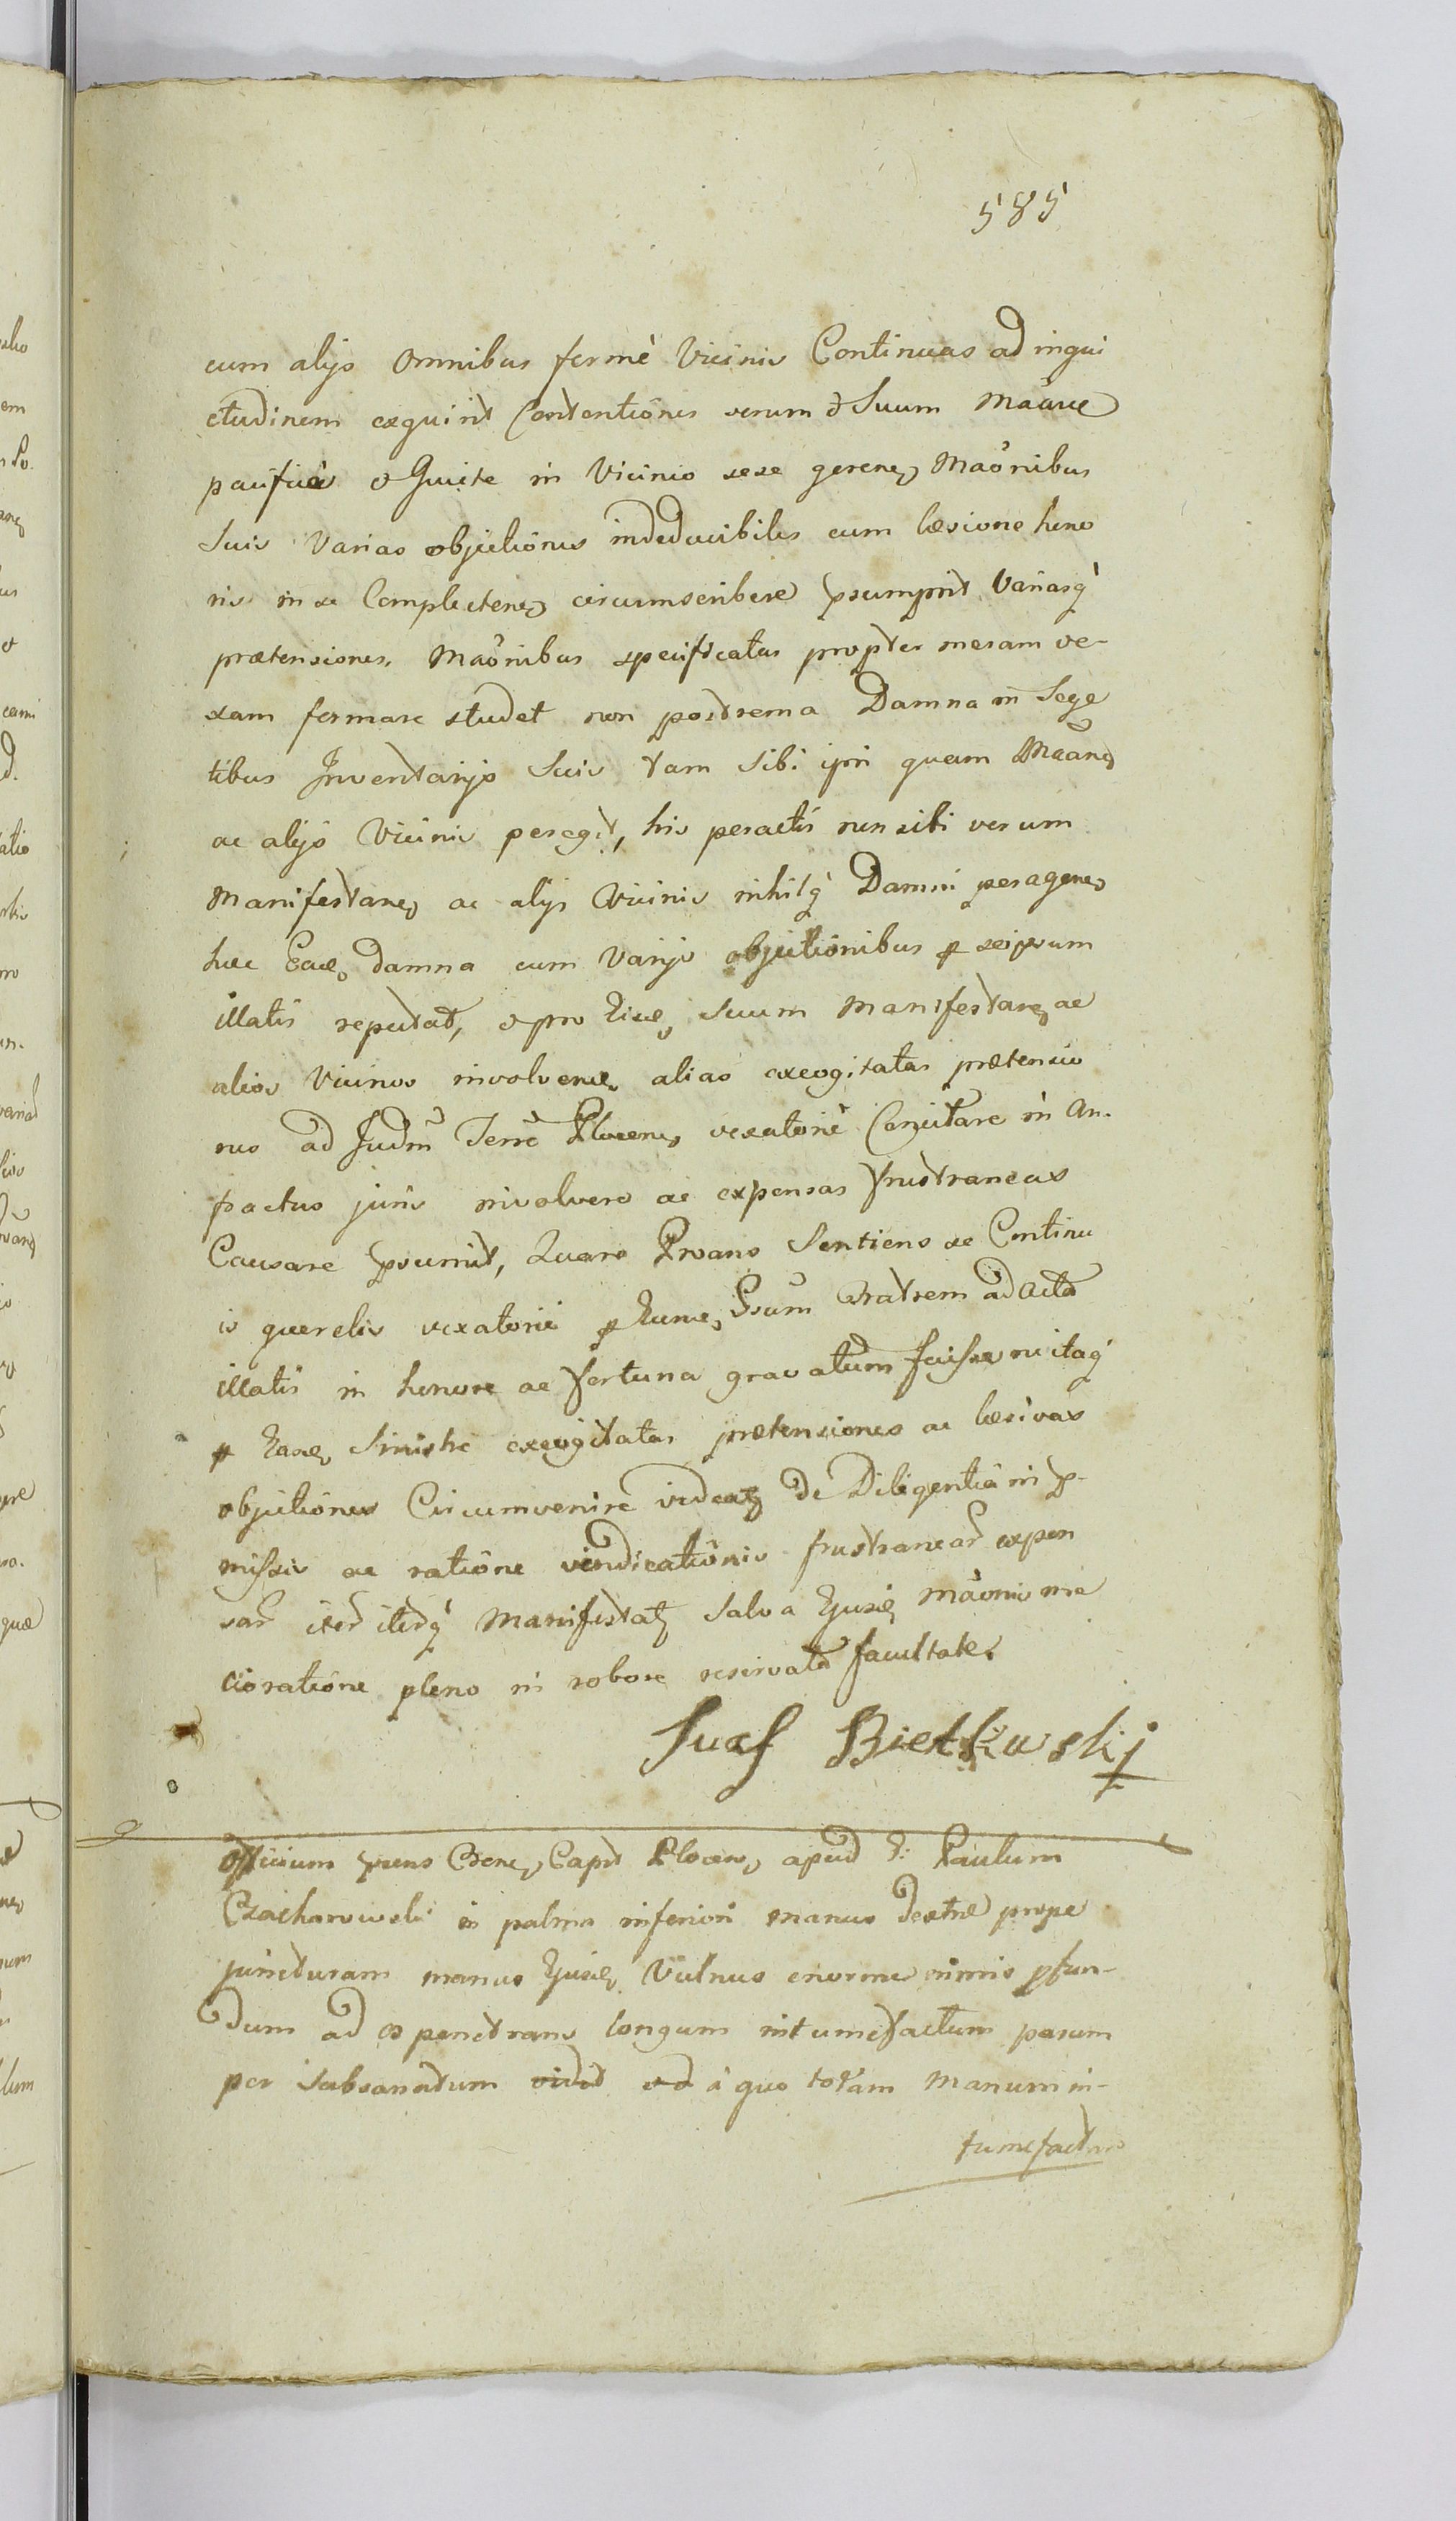 585
cum alijs omnibus fermè Vicinis Continuas ad inqui
etudinem exquirit Contentiones verum & Suum Mānte
pacificè & Quiete in Vicinio sese geren Maōnibus
Suis Varias objectiōnes indeducibiles cum læsione hono
ris in se Complecten circumscribere psumpsit Variasq
prætensiones Maōnibus specificatas propter meram ve-
xam formare studet non postrema Damna in Sege
tibus Inventarijs Suis tam sibi ipsi quam Mãan
ac alijs Vicinis peregit, his peractis non sibi verum
Manifestan ac alijs Vicinis nihilq Damni peragen
hæc Eade damna cum Varijs objectiōnibus p seipsum
illatis reputat, & pro Eisd Suum Manifestan ac
alios Vicinos involvend alias excogitatas prætensio
nes ad Judm Terre Plocen vexatoriè Concitare in An-
fractus juris involvere ac expensas frustraneas
Causare psumit, Quare Proans Sentiens se Continu
is querelis vexatorie p Eund Ssum Fratrem ad Acta
illatis in honore ac fortuna gravatum fuisse ne itaq
p Easd Sinistre excogitatas prætensiones ac læsivas
objectiōnes Circumvenire videat de Diligentiâ in p-
missis ac ratiōne vindicatiōnis frustranear expen
sar iter iterq Manifestat Salva Ejusd Mãonis me
lioratiōne pleno in robore reservata facultate.
Juzef Bietkowskj
Officium pnens Cren Capt Plocen apud G: Paulum
Czacharowski in palma inferiori manus dextræ prope
juncturam manus Ejusd Vulnus enorme nimis pfun-
dum ad os penetrans longum intumefactum parum
per subsanatum vidit à quo totam Manum in-
tumefactam